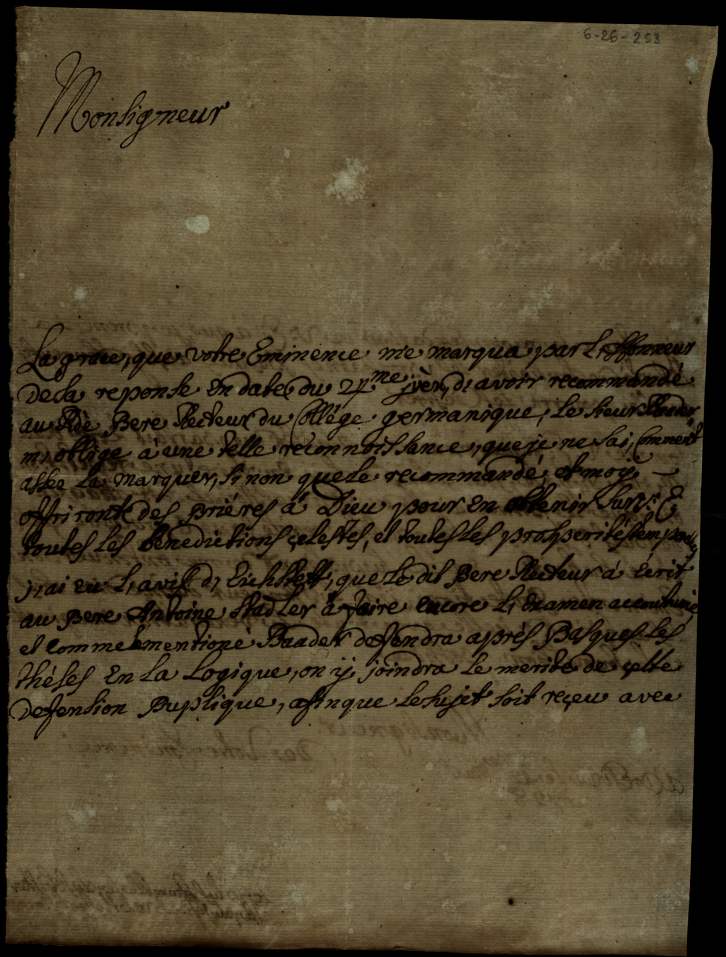 6-26-253
Monsigneur
La grace, que votre Eminence me marqua par l,
de la reponse en date, du 27me jver, d, avoir recommandé
au Rde Pere Recteur du Collége germanique, le sieur Baader
m, obllige à une telle reconnoissance, que je ne sai, comment
assée la marquer, si non que le recommandé, et moy
offriront des priéres á Dieu pour en obtenir sur V: E
toutes les benedictions celestes, et toutes les prosperités
j, ai eu l, avis d, Eichstett, que le dit Pere Recteur à écrit
au Pere Antoine Stadler à faire encore l, examen accoutumé
et comme mentioné Baader defendra aprés Pasques les
théses en la Logique, on ÿ joindra le merite de cette
defension Puplique, afinque le sujet soit reçeu avec